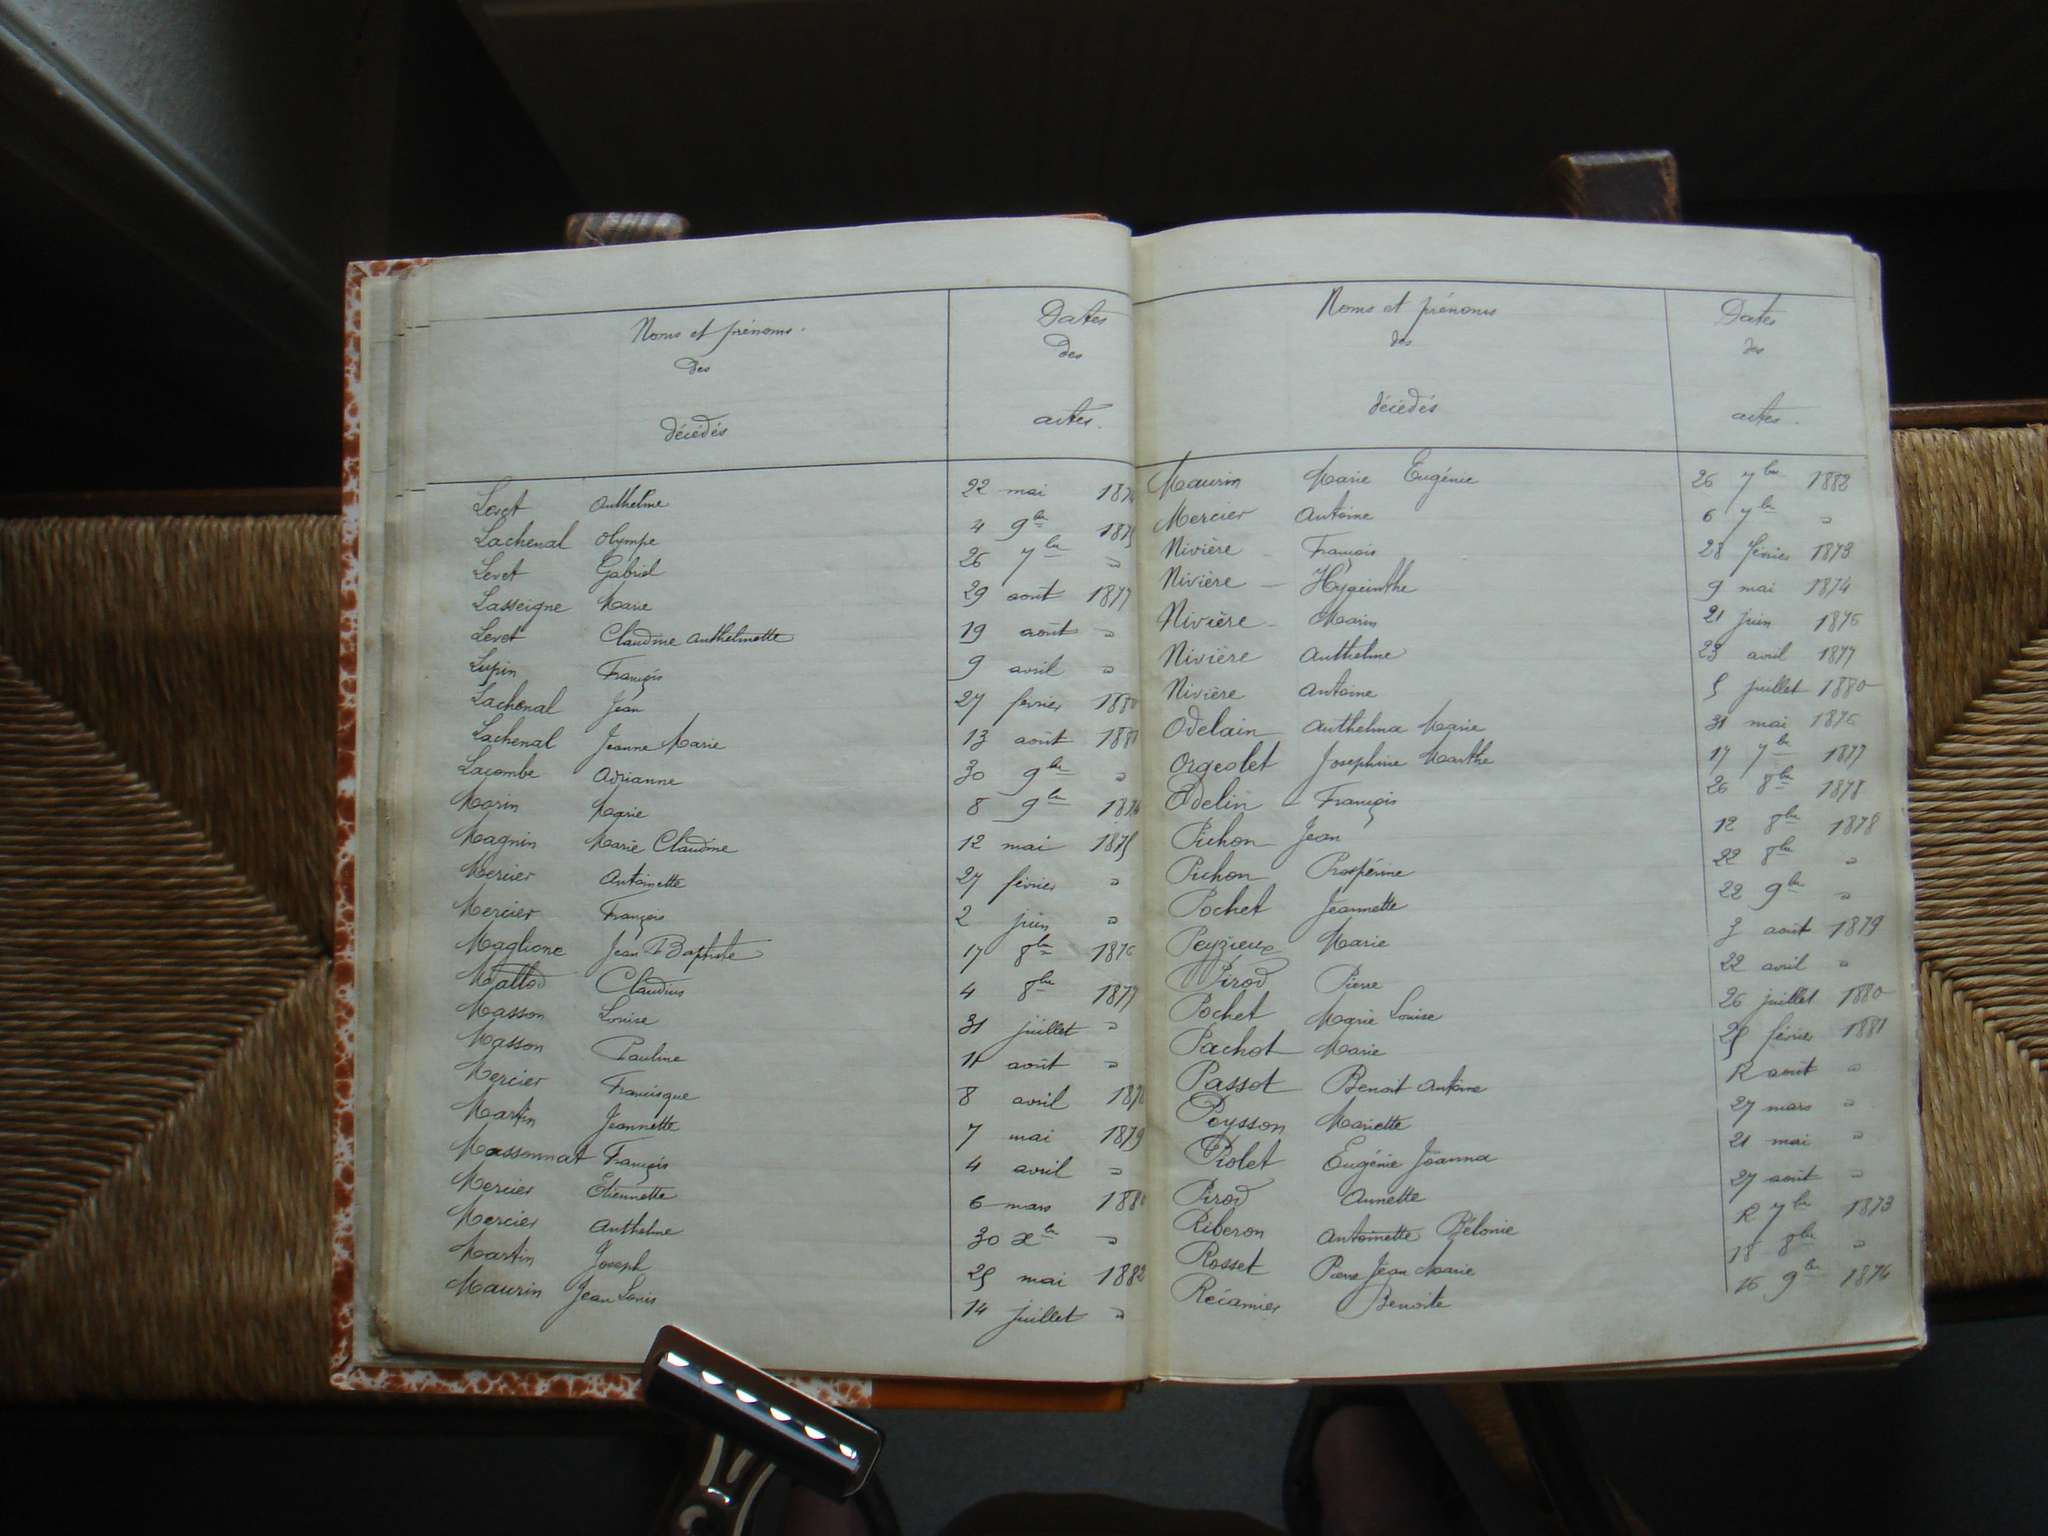 Noms et prénoms
des
décédés
Dates
des
actes.
Levet Anthelme 22 mai
Lachenal Olympe 4 9bre 1875
Levet Gabriel 26 7bre "
Lasseigne Marie 29 août 1877
Levet Claudine Anthelmette 19 août "
Lupin François 9 avril "
Lachenal Jean 27 février 1880
Lachenal Jeanne Marie 13 août 1881
Lacombe Adrianne 30 9bre "
Morin Marie 8 9bre 1874
Magnin Marie Claudine 12 mai 1875
Mercier Antoinette 27 février "
Mercier François 2 juin "
Maglione Jean Baptiste 17 8bre 1876
Mattod Claudius 4 8bre 1877
Masson Louise 31 juillet "
Masson Pauline 11 août "
Mercier Francisque 8 avril 1878
Martin Jeannette 7 mai 1879
Massonnat François 4 avril "
Mercier Etiennette 6 mars 1880
Mercier Anthelme 30 xbre "
Martin Joseph 25 mai 1882
Maurin Jean Louis 14 juillet "
Noms et prénoms
des
décédés
Dates
des
actes.
Maurin Marie Eugénie 26 7bre 1882
Mercier Antoine 6 7bre "
Nivière François 28 février 1873
Nivière Hygeinthe 9 mai 1874
Nivière Marin 21 juin 1876
Nivière Anthelme 23 avril 1877
Nivière Antoine 5 juillet 1880
Odelain Anthelma Marie 31 mai 1876
Orgeolet Josephine Marthe 17 7bre 1877
Odelin François 26 8bre 1878
Pichon Jean 12 8bre 1878
Pichon Prospérine 22 8bre "
Pochet Jeannette 22 9bre "
Peyzieux Marie 3 août 1879
Pirod Pierre 22 avril "
Pochet Marie Louise 26 juillet 1880
Pachot Marie 25 février 1881
Passot Benoit Antoine 12 août "
Peysson Mariette 27 mars "
Piolet Eugénie Joanna 21 mai "
Pirod Annette 27 août "
Riberon Antoinette Pélonie 12 7bre 1873
Rosset Pierre Jean Marie 18 8bre "
Récamier Benoite 16 9bre 1874